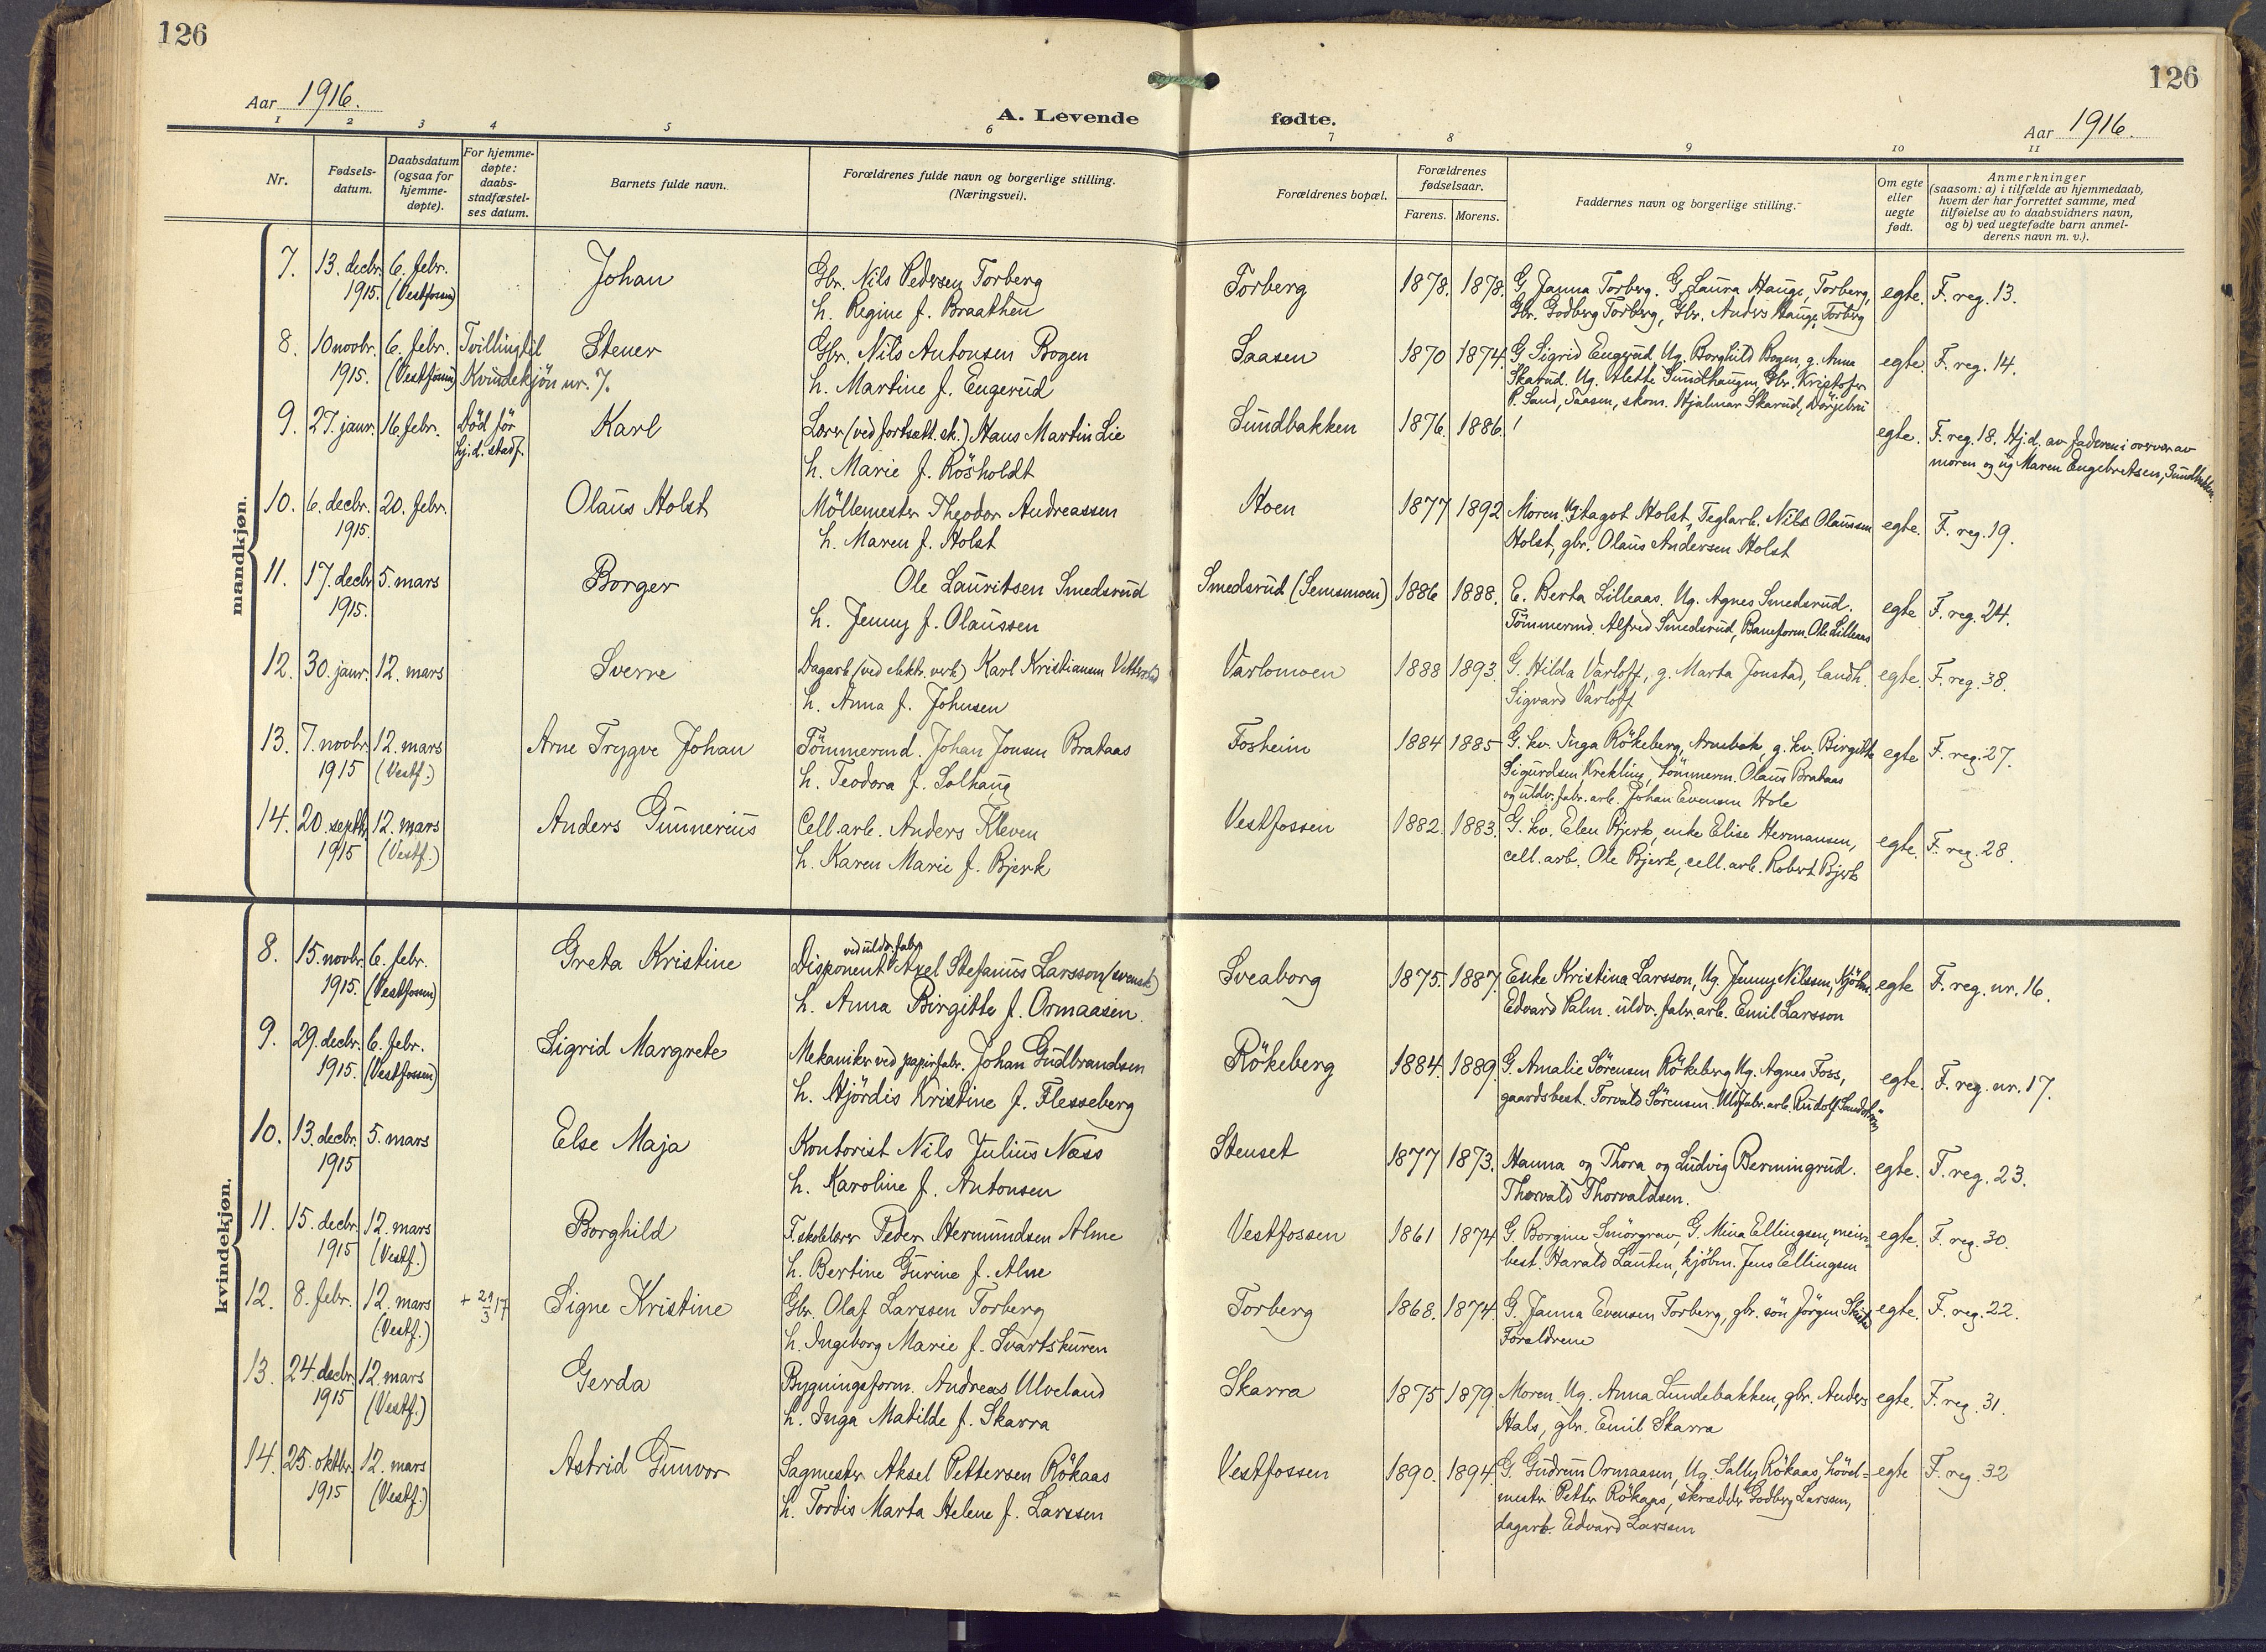 126
126
Aar 1916.
A. Levende fødte.
Aar 1916.
1 2 3 4 5 6 7 8 9 10 11
Nr.
Fødsels-
datum.
Daabsdatum
(ogsaa for
hjemme-
døpte).
For hjemme-
døpte:
daabs-
stadfæstel-
ses datum.
Barnets fulde navn.
Forældrenes fulde navn og borgerlige stilling.
(Næringsvei).
Forældrenes bopæl.
Forældrenes
fødselsaar.
Farens. Morens.
Faddernes navn og borgerlige stilling.
Om egte
eller
uegte
født.
Anmerkninger
(saasom: a) i tilfælde av hjemmedaab,
hvem der har forrettet samme, med
tilføielse av to daabsvidners navn,
og b) ved uegtefødte barn anmel-
derens navn m. v.).
mandkjøn.
7. 13. decbr. 6. febr. Johan Gbr. Nils Pedersen Torberg Torberg 1878. 1878. G. Janna Torberg. G. Laura Hauge, Torberg, egte. F. reg. 13.
1915. (Vestfossen) h. Regine f. Braathen Gbr. Godberg Torberg, Gbr. Anders Hauge, Torberg
8. 10 novbr. 6. febr. Tvilling til Stener Gbr. Nils Antonsen Bogen Saasen 1870 1874. G. Sigrid Engerud, Ug. Borghild Bogen, g. Anna egte. F. reg. 14.
1915. (Vestfossen) Kvindekjøn nr. 7. h. Martine f. Engerud Skarud. Ug. Alette Sundhaugen, Gbr. Kristofer
P. Sand, Saasen, skom. Hjalmar Skarud,
9. 27. janr. 16 febr. Død før Karl Lærer (ved fortsett. sk.) Hans Martin Lie Sundbakken 1876. 1886. egte. F. reg. 18. Hj.d. av faderen i overvær av
hj.d. stadf. h. Marie f. Rösholdt moren og ug Maren Engebretsen, Sundbakken
10. 6. decbr. 20. febr. Olaus Holst Möllemester Theodor Andreassen Hoen 1877 1892 Moren. Ug Holst, Teglarb. Nils Olaussen egte. F. reg. 19.
1915. h. Maren f. Holst Holst, gbr. Olaus Andersen Holst
11. 17. decbr 5. mars Borger Ole Lauritsen Smedsrud Smedsrud (Semsmoen) 1886 1888. E. Berta Lilleaas. Ug. Agnes Smedsrud. egte F. reg. 24.
1915. h. Jenny f. Olaussen Tömmermd. Alfred Smedsrud, Baneform. Ole Lilleaas
12. 30. janr. 12. mars Sverre Dagarb (ved elektr. verk) Karl Kristiansen Varlomoen 1888 1893. G. Hilda Varloff, g. Marta Jonstad, landh. egte. F. reg. 38.
h. Anna f. Johnsen Sigvard Varloff
13. 7. novbr. 12. mars Arne Trygve Johan Tömmermd. Johan Jonsen Brataas Fosheim 1884 1885 G. kv. Inga Rökeberg, Arnebak, g. kv. Birgitte egte F. reg. 27.
1915 (Vestf.) h. Teodora f. Solhaug Sigurdsen, Krekling, tömmerm. Olaus Brataas
og uldv. fabr. arb. Johan Evensen Hole
14. 20. septbr. 12. mars Anders Gunnerius Cell. arb. Anders Kleven Vestfossen 1882. 1883. G. kv. Elen Bjerk, enke Elise Hermansen, egte. F. reg. 28.
1915 (Vestf.) h. Karen Marie f. Bjerk cell. arb. Ole Bjerk, cell. arb. Robert Bjerk
kvindekjøn.
ved uldv. fabr.
8. 15. novbr. 6. febr. Greta Kristine Disponent Axel Stefanus Larsson (svensk) Sveaborg 1875. 1887. Enke Kristina Larsson, Ug. Jenny Nilssen, Kjöbm. egte F. reg. nr. 16.
1915. (Vestfossen) h. Anna Birgitte f. Ormaasen. Edvard Palm. uldv. fabr. arb. Emil Larsson
9. 29. decbr. 6. febr. Sigrid Margrete Mekaniker ved papirfabr. Johan Gudbrandsen Rökeberg 1884. 1889. G. Amalie Sörensen Rökeberg Ug. Agnes Foss, egte. F. reg. nr. 17.
1915. (Vestfossen) h. Hjördis Kristine f. Flesseberg gaardsbest. Torvald Sörensen. Uldfabr. arb. Rudolf Sandström
10. 13. decbr. 5. mars Else Maja Kontorist Nils Julius Næss Stenset 1877 1873. Hanna og Thora og Ludvig Bermingrud. egte. F. reg. 23.
1915 h. Karoline f. Antonsen Thorvald Thorvaldsen.
11. 15. decbr. 12. mars Borghild F. skolelærer Peder Hermundsen Alme Vestfossen 1861 1874 G. Borgine Smörgrav, G. Mina Ellingsen, meieri- egte. F. reg. 30.
1915 (Vestf.) h. Bertine Gurine f. Alme best. Harald Lauten, kjöbm. Jens Ellingsen
12. 8. febr. 12. mars + 21/3 17 Signe Kristine Gbr. Olaf Larssen Torberg Torberg 1868. 1874. G. Janna Evensen Torberg, gbr. sön Jörgen egte. F. reg. 22.
(Vestf.) h. Ingeborg Marie f. Svartskuren Forældrene
13. 24. decbr. 12. mars Gerda Bygningsform. Andreas Ulveland Skarra 1875 1879. Moren. Ug. Anna Lundebakken, gbr. Anders egte. F. reg. 31.
1915 (Vestf.) h. Inga Matilde f. Skarra Hals, gbr. Emil Skarra
14. 25. oktbr. 12. mars Astrid Gunvor Sagmester Aksel Pettersen Rökaas Vestfossen 1890. 1894. G. Gudrun Ormaasen, Ug. Sally Rökaas, hövel- egte F. reg. 32
1915 (Vestf.) h. Tordis Marta Helene f. Larssen mester Petter Rökaas, skrædder Godberg Larssen,
dagarb. Edvard Larssen